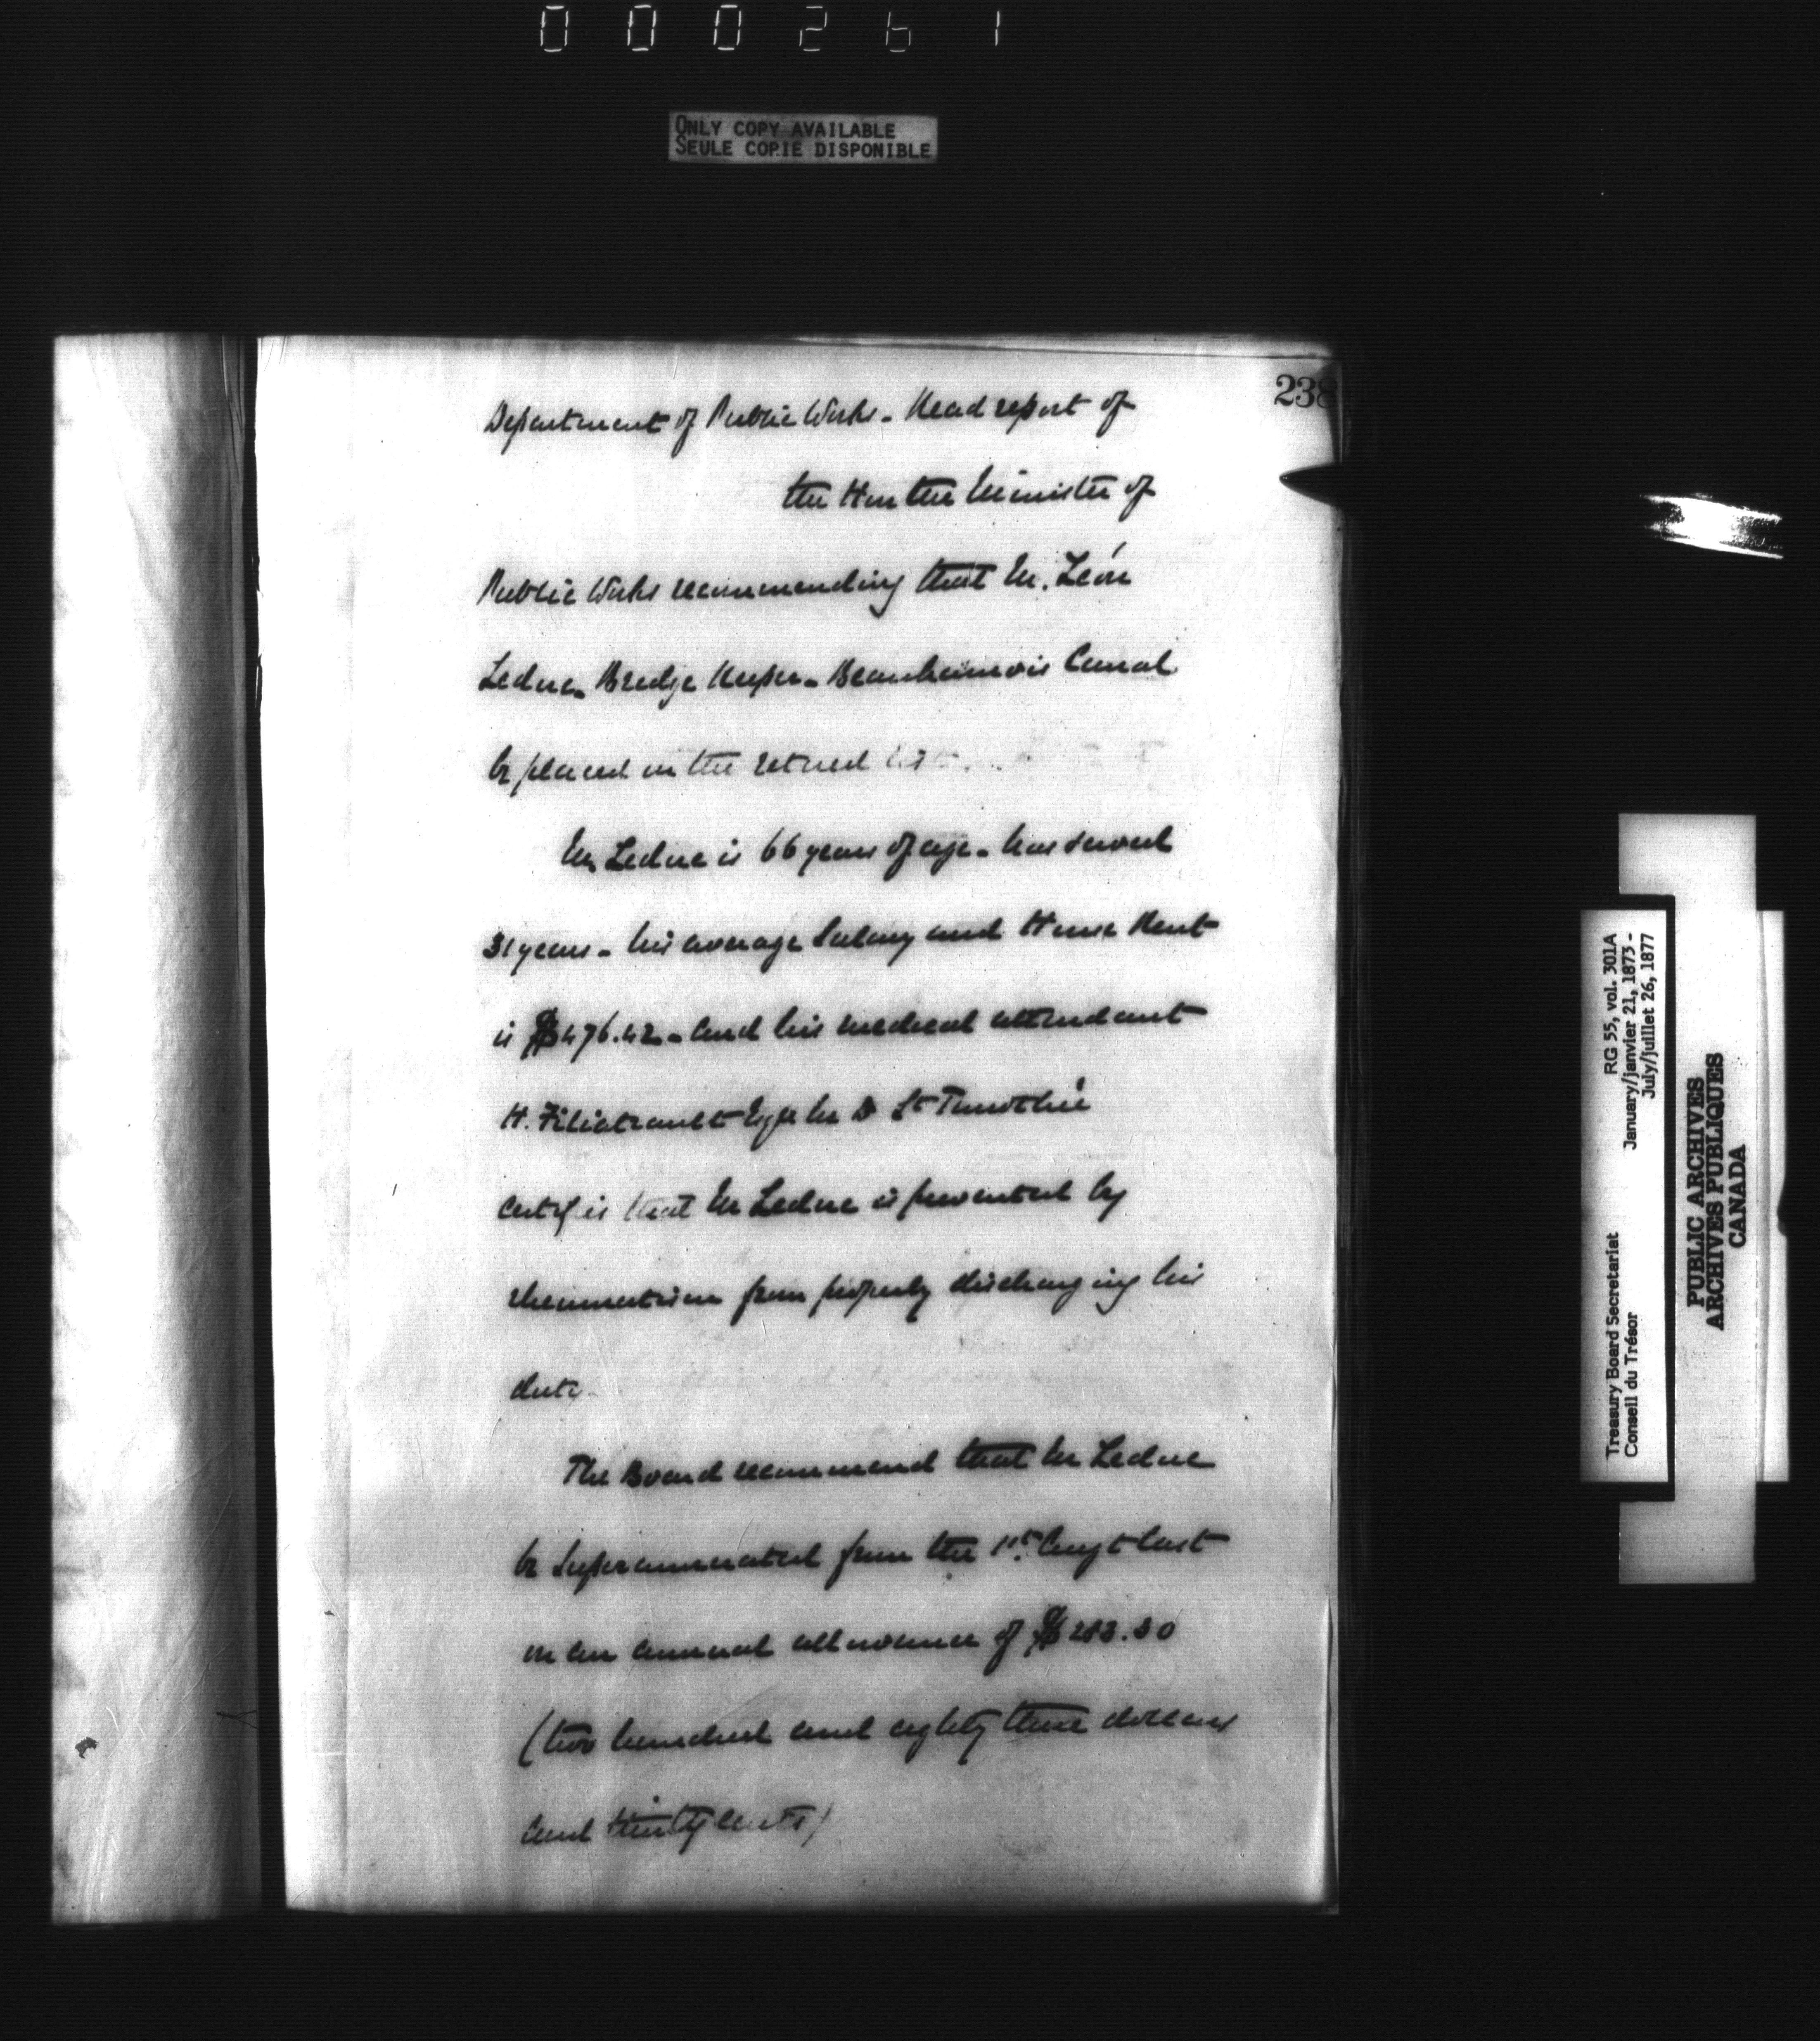 000261
ONLY COPY AVAILABLE
SEULE COPIE DISPONIBLE
238
Department of Public Works - Read report of
the Hon the Minister of
Public Works recommending that Mr. Léon
Leduc - Bridge Keeper - Beauharnois Canal
be placed on the retired list.
Mr Leduc is 66 years of age - has served
31 years - his average Salary and House Rent
is $476.42 - and his medical attendant
H. Filiatrault Esqr M D St Timothée
certifies that Mr Leduc is prevented by
rheumatism from properly discharging his
duty
The Board recommend that Mr Leduc
be Superannuated from the 1st Augt last
on an annual allowance of $283.30
(two hundred and eighty three dollars
and thirty cents)
Treasury Board Secretariat RG 55, vol. 301A
Conseil du Trésor January/janvier 21, 1873 -
July/juillet 26, 1877
PUBLIC ARCHIVES
ARCHIVES PUBLIQUES
CANADA